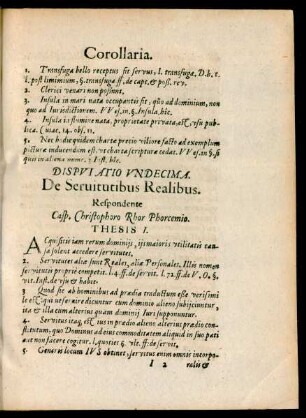 Corollaria.
1. Transfuga bello receptus fit servus, l. transfuga, D. h. t.
l. post liminium, §. transfuga ff. de capt. & post. rev.
2. Clerici venari non possunt.
3. Insula in mari nata occupantis fit, quo ad dominium, non
quo ad Jurisdictionem. VVes. in, §. Insula, hic.
4. Insula in flumine nata, proprietate privata, est, usu pu-
blica. 14. obs. 11.
5. Nec hodie quidem charta precio viliore facto ad exemplum
picturæ induc endum est, ut charta scripturæ cedat. VVes. in §. si
quis in aliena Inst. hic.
DISPUTATIO UNDECIMA.
De Servitutibus Realibus.
Respondente
Casp. Christophoro Rhor Phorcemio.
THESIS I.
Acquisitis iam rerum dominijs, ijs maioris utilitatis cau-
sa solent accedere servitutes.
2. Servitutes aliæ sunt Reales, aliæ Personales. Illis nomen
servitutis proprie competit. l. 4. ff. de servit. l. 72. ff. de V. O. §.
vit. Inst. de usu & habit.
3 Quod sit ab hominibus ad prædia traductum esse verisimi
le est: qui uti servire dicuntur cum dominio alieno subijciuntur,
ita & illa cum alterius quam dominij Juri supponuntur.
4. Servitus itaq, est Jus in prædio alieno alterius prædio con-
stitutum, quo Dominus ad eius commoditatem aliquid in suo pati
aut non facere cogitur. l. quoties §. ult. ff. de servit.
5. Generis locum IUS obtinet, servitus enim omnis incorpo-
I 2 ralis